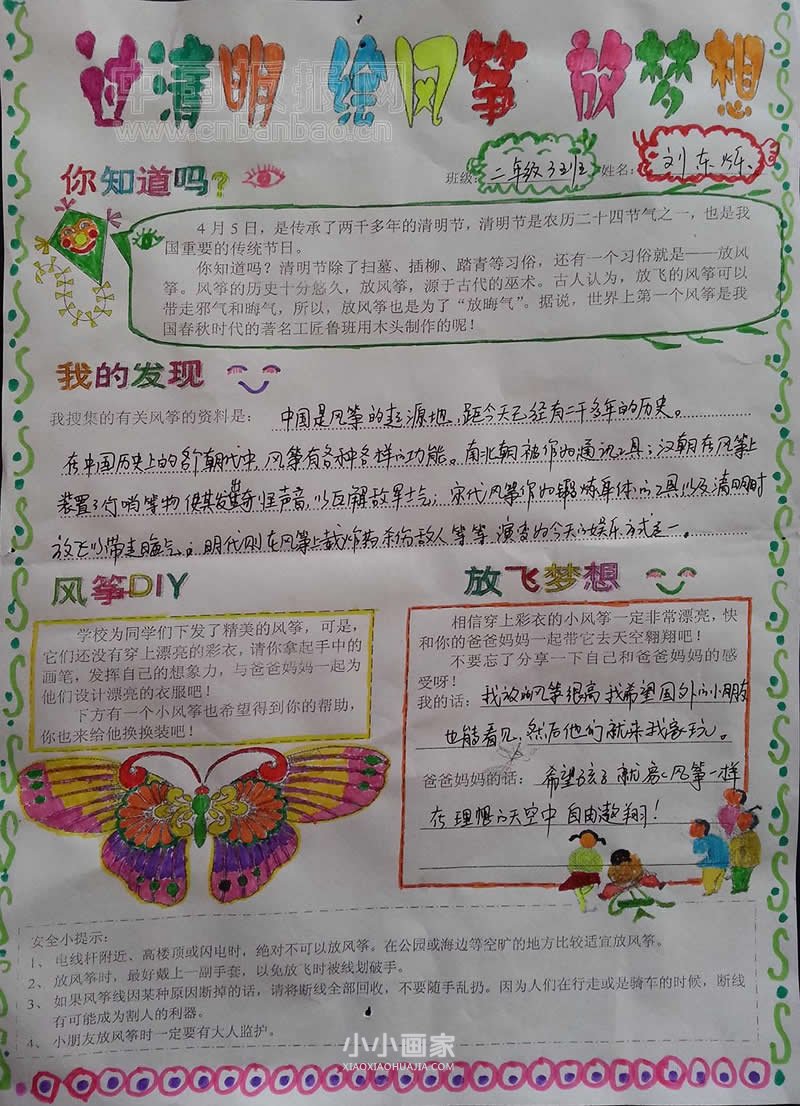 过清明 绘风筝 放梦想
中国板报网
www.cnbanbao.cn
你知道吗?
班级: 二年级3班 姓名: 刘东烁
4月5日，是传承了两千多年的清明节，清明节是农历二十四节气之一，也是我
国重要的传统节日。
你知道吗？清明节除了扫墓、插柳、踏青等习俗，还有一个习俗就是——放风
筝。风筝的历史十分悠久，放风筝，源于古代的巫术。古人认为，放飞的风筝可以
带走邪气和晦气，所以，放风筝也是为了“放晦气”。据说，世界上第一个风筝是我
国春秋时代的著名工匠鲁班用木头制作的呢！
我的发现
我搜集的有关风筝的资料是： 中国是风筝的起源地，距今天已经有二千多年的历史。
在中国历史上的各个朝代中，风筝有各种各样的功能。南北朝被作如通讯工具；汉朝在风筝上
装置了竹哨等物使其发出奇怪声音，以瓦解敌军士气；宋代风筝作如锻炼身体的工具，以及清明时
放飞以带走晦气；明代则在风筝上载炸药杀伤敌人等等，演变为今天的娱乐方式之一。
风筝DIY
学校为同学们下发了精美的风筝，可是，
它们还没有穿上漂亮的彩衣，请你拿起手中的
画笔，发挥自己的想象力，与爸爸妈妈一起为
他们设计漂亮的衣服吧！
下方有一个小风筝也希望得到你的帮助，
你也来给他换换装吧！
放飞梦想
相信穿上彩衣的小风筝一定非常漂亮，快
和你的爸爸妈妈一起带它去天空翱翔吧！
不要忘了分享一下自己和爸爸妈妈的感
受呀！
我的话：我放的风筝很高，我希望国外的小朋友
也能看见，然后他们就来我家玩。
爸爸妈妈的话： 希望孩子就象风筝一样
在理想的天空中自由翱翔！
安全小提示：
1、 电线杆附近、高楼顶或闪电时，绝对不可以放风筝。在公园或海边等空旷的地方比较适宜放风筝。
2、 放风筝时，最好戴上一副手套，以免放飞时被线划破手。
3、 如果风筝线因某种原因断掉的话，请将断线全部回收，不要随手乱扔。因为人们在行走或是骑车的时候，断线
有可能成为割人的利器。
4、 小朋友放风筝时一定要有大人监护。
小小画家
XIAOXIAOHUAJIA.COM